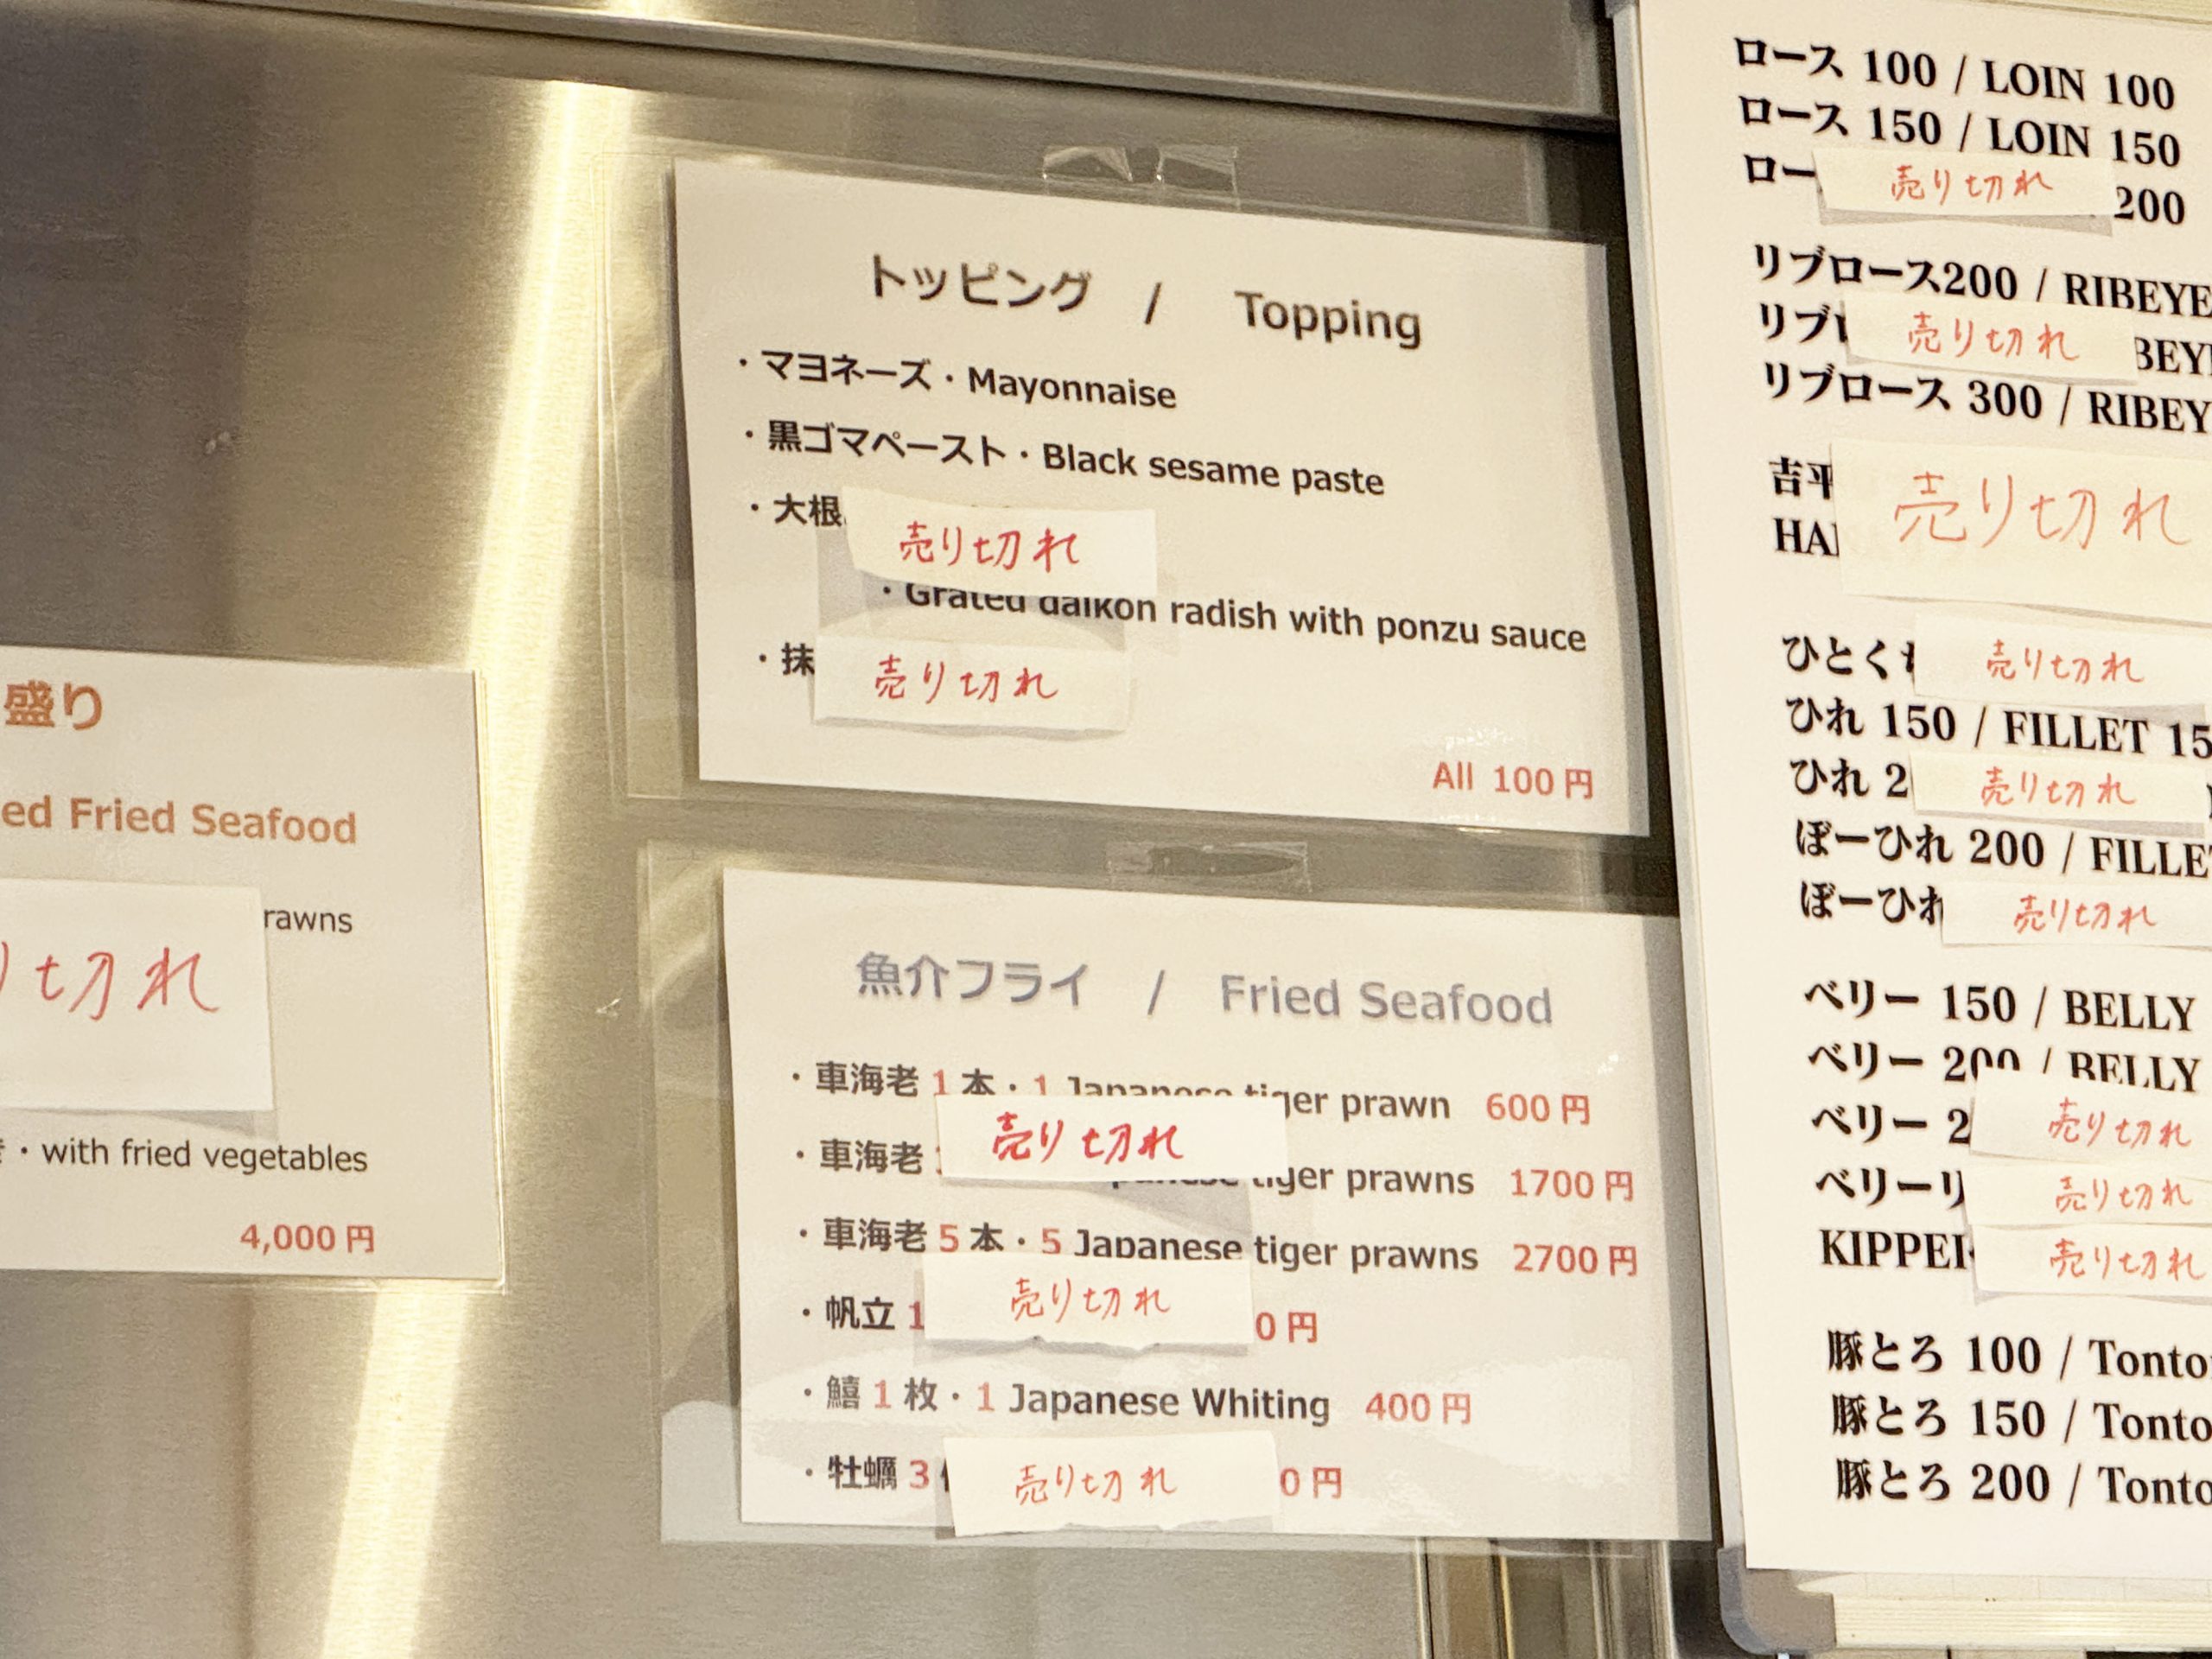 盛り
ed Fried Seafood
rawns
り切れ
・with fried vegetables
4,000円
トッピング / Topping
・マヨネーズ・Mayonnaise
・黒ゴマペースト・Black sesame paste
・大根
売り切れ
・Grated daikon radish with ponzu sauce
・抹
売り切れ
All 100円
魚介フライ / Fried Seafood
・車海老 1 本・1 Japanese tiger prawn 600円
・車海老 売り切れ tiger prawns 1700円
・車海老 5 本・5 Japanese tiger prawns 2700円
・帆立 1 売り切れ 0円
・鱚 1 枚・1 Japanese Whiting 400円
・牡蠣 3 売り切れ 0円
ロース 100 / LOIN 100
ロース 150 / LOIN 150
ロー 売り切れ 200
リブロース200 / RIBEYE
リブ 売り切れ BEYE
リブロース 300 / RIBEY
吉平 売り切れ
HA
ひとく 売り切れ
ひれ 150 / FILLET 15
ひれ 2 売り切れ
ぼーひれ 200 / FILLE
ぼーひれ 売り切れ
ベリー 150 / BELLY
ベリー 200 / BELLY
ベリー 2 売り切れ
ベリーリ 売り切れ
KIPPEI 売り切れ
豚とろ 100 / Tonto
豚とろ 150 / Tonto
豚とろ 200 / Tonto